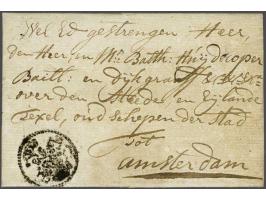 Wel Ed gestrengen Heer,
den Heer, en Mr: Batth: Huijdecoper
Baill: en Dijkgraaff &&&
over den Steede en Eijlande
Texel, oud Schepen der Stad
tot
amsterdam